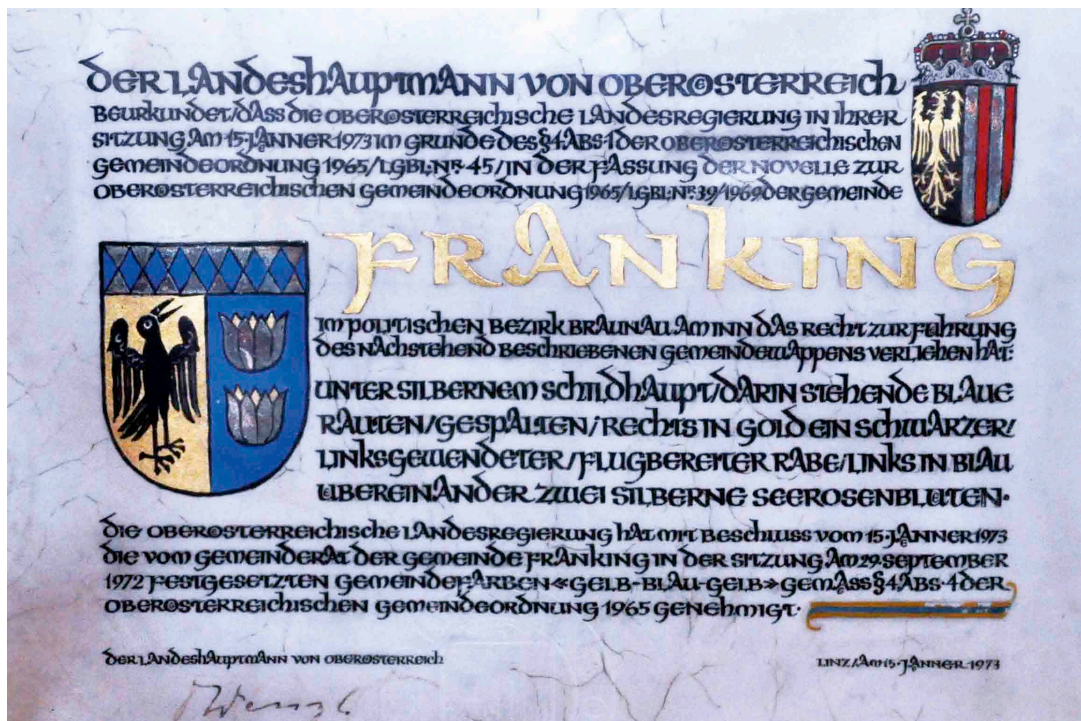 DER LANDESHAUPTMANN VON OBERÖSTERREICH
BEURKUNDET/DASS DIE OBERÖSTERREICHISCHE LANDESREGIERUNG IN IHRER
SITZUNG AM 15·JÄNNER 1973 IM GRUNDE DES §4 ABS·1 DER OBERÖSTERREICHISCHEN
GEMEINDEORDNUNG 1965/LGBL·NR·45/IN DER FASSUNG DER NOVELLE ZUR
OBERÖSTERREICHISCHEN GEMEINDEORDNUNG 1965/LGBL·NR·39/1969 DER GEMEINDE
FRANKING
IM POLITISCHEN BEZIRK BRAUNAU AM INN DAS RECHT ZUR FÜHRUNG
DES NACHSTEHEND BESCHRIEBENEN GEMEINDEWAPPENS VERLIEHEN HAT:
UNTER SILBERNEM SCHILDHAUPT/DARIN STEHENDE BLAUE
RAUTEN/GESPALTEN/RECHTS IN GOLD EIN SCHWARZER/
LINKSGEWENDETER/FLUGBEREITER RABE/LINKS IN BLAU
ÜBEREINANDER ZWEI SILBERNE SEEROSENBLÜTEN·
DIE OBERÖSTERREICHISCHE LANDESREGIERUNG HAT MIT BESCHLUSS VOM 15·JÄNNER 1973
DIE VOM GEMEINDERAT DER GEMEINDE FRANKING IN DER SITZUNG AM 29·SEPTEMBER
1972 FESTGESETZTEN GEMEINDEFARBEN «GELB-BLAU-GELB» GEMÄSS §4 ABS·4 DER
OBERÖSTERREICHISCHEN GEMEINDEORDNUNG 1965 GENEHMIGT·
DER LANDESHAUPTMANN VON OBERÖSTERREICH
LINZ/AM 15·JÄNNER 1973